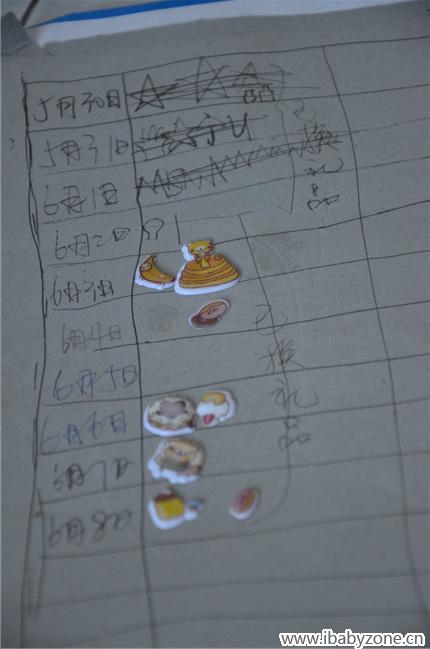 5月30日
5月31日
6月1日
6月2日
6月3日
6月4日
6月5日
6月6日
6月7日
6月8日
已换礼品
已换礼品
www.ibabyzone.cn